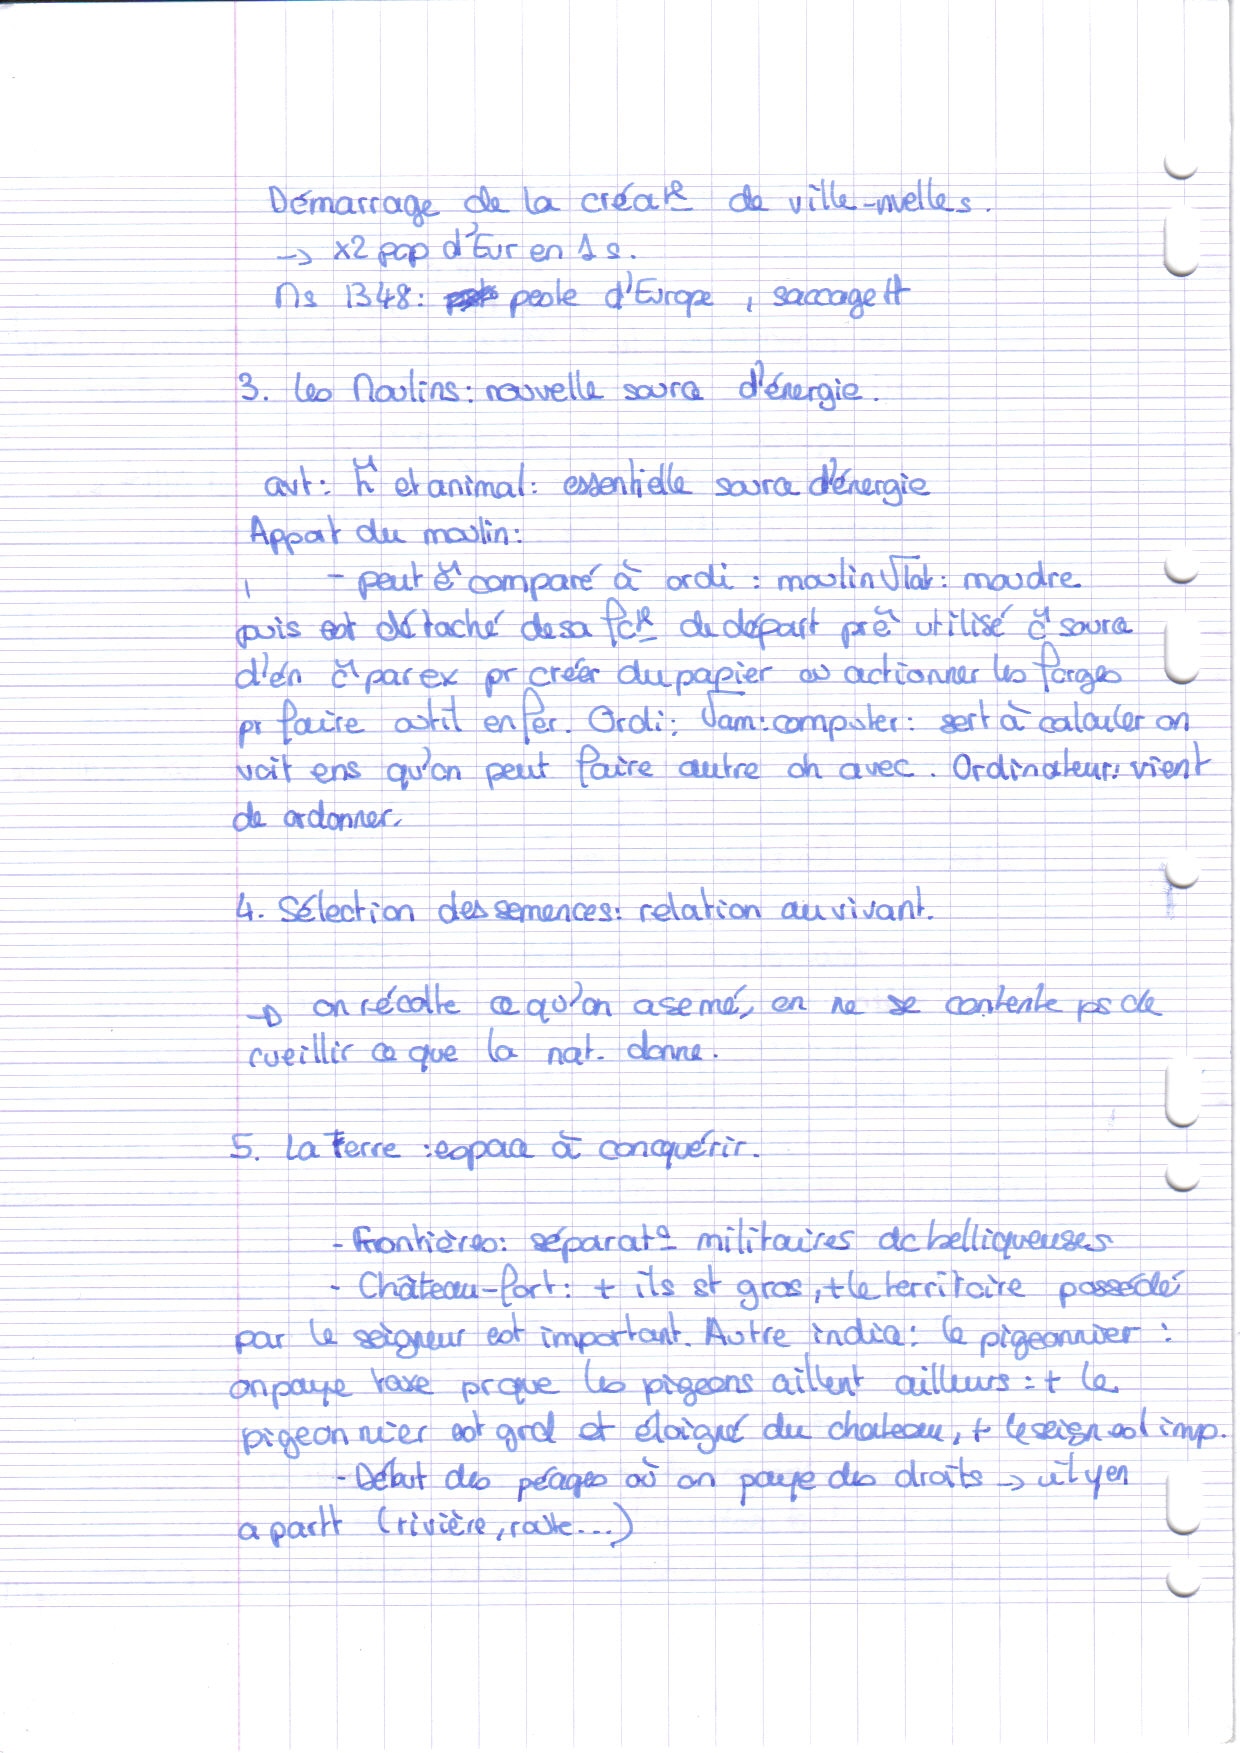 Démarrage de la créat° de ville-nvelles.
→ x2 pop d'Eur en 1 s.
Ms 1348: peste d'Europe, saccage tt
3. Les Moulins: nouvelle source d'énergie.
avt: h̃ et animal: essentielle source d'énergie
Appart du moulin:
- peut ễ comparé à ordi : moulin √lat: moudre
puis est détaché de sa fct° de départ pr ễ utilisé c̃ source
d'én c̃ par ex pr créer du papier ou actionner les forges
pr faire outil en fer. Ordi: √am: computer: sert à calculer on
voit ens qu'on peut faire autre ch avec. Ordinateur: vient
de ordonner.
4. Sélection des semences: relation au vivant.
→ on récolte ce qu'on a semé, on ne se contente ps de
cueillir ce que la nat. donne.
5. La Terre : espace à conquérir.
- Frontières: séparat° militaires dc belliqueuses
- Château-fort: + ils st gros, + le territoire possédé
par le seigneur est important. Autre indice: le pigeonnier :
on paye taxe pr que les pigeons aillent ailleurs : + le
pigeonnier est grd et éloigné du chateau, + le seign est imp.
- Début des péages où on paye des droits → il y en
a partt (rivière, route...)